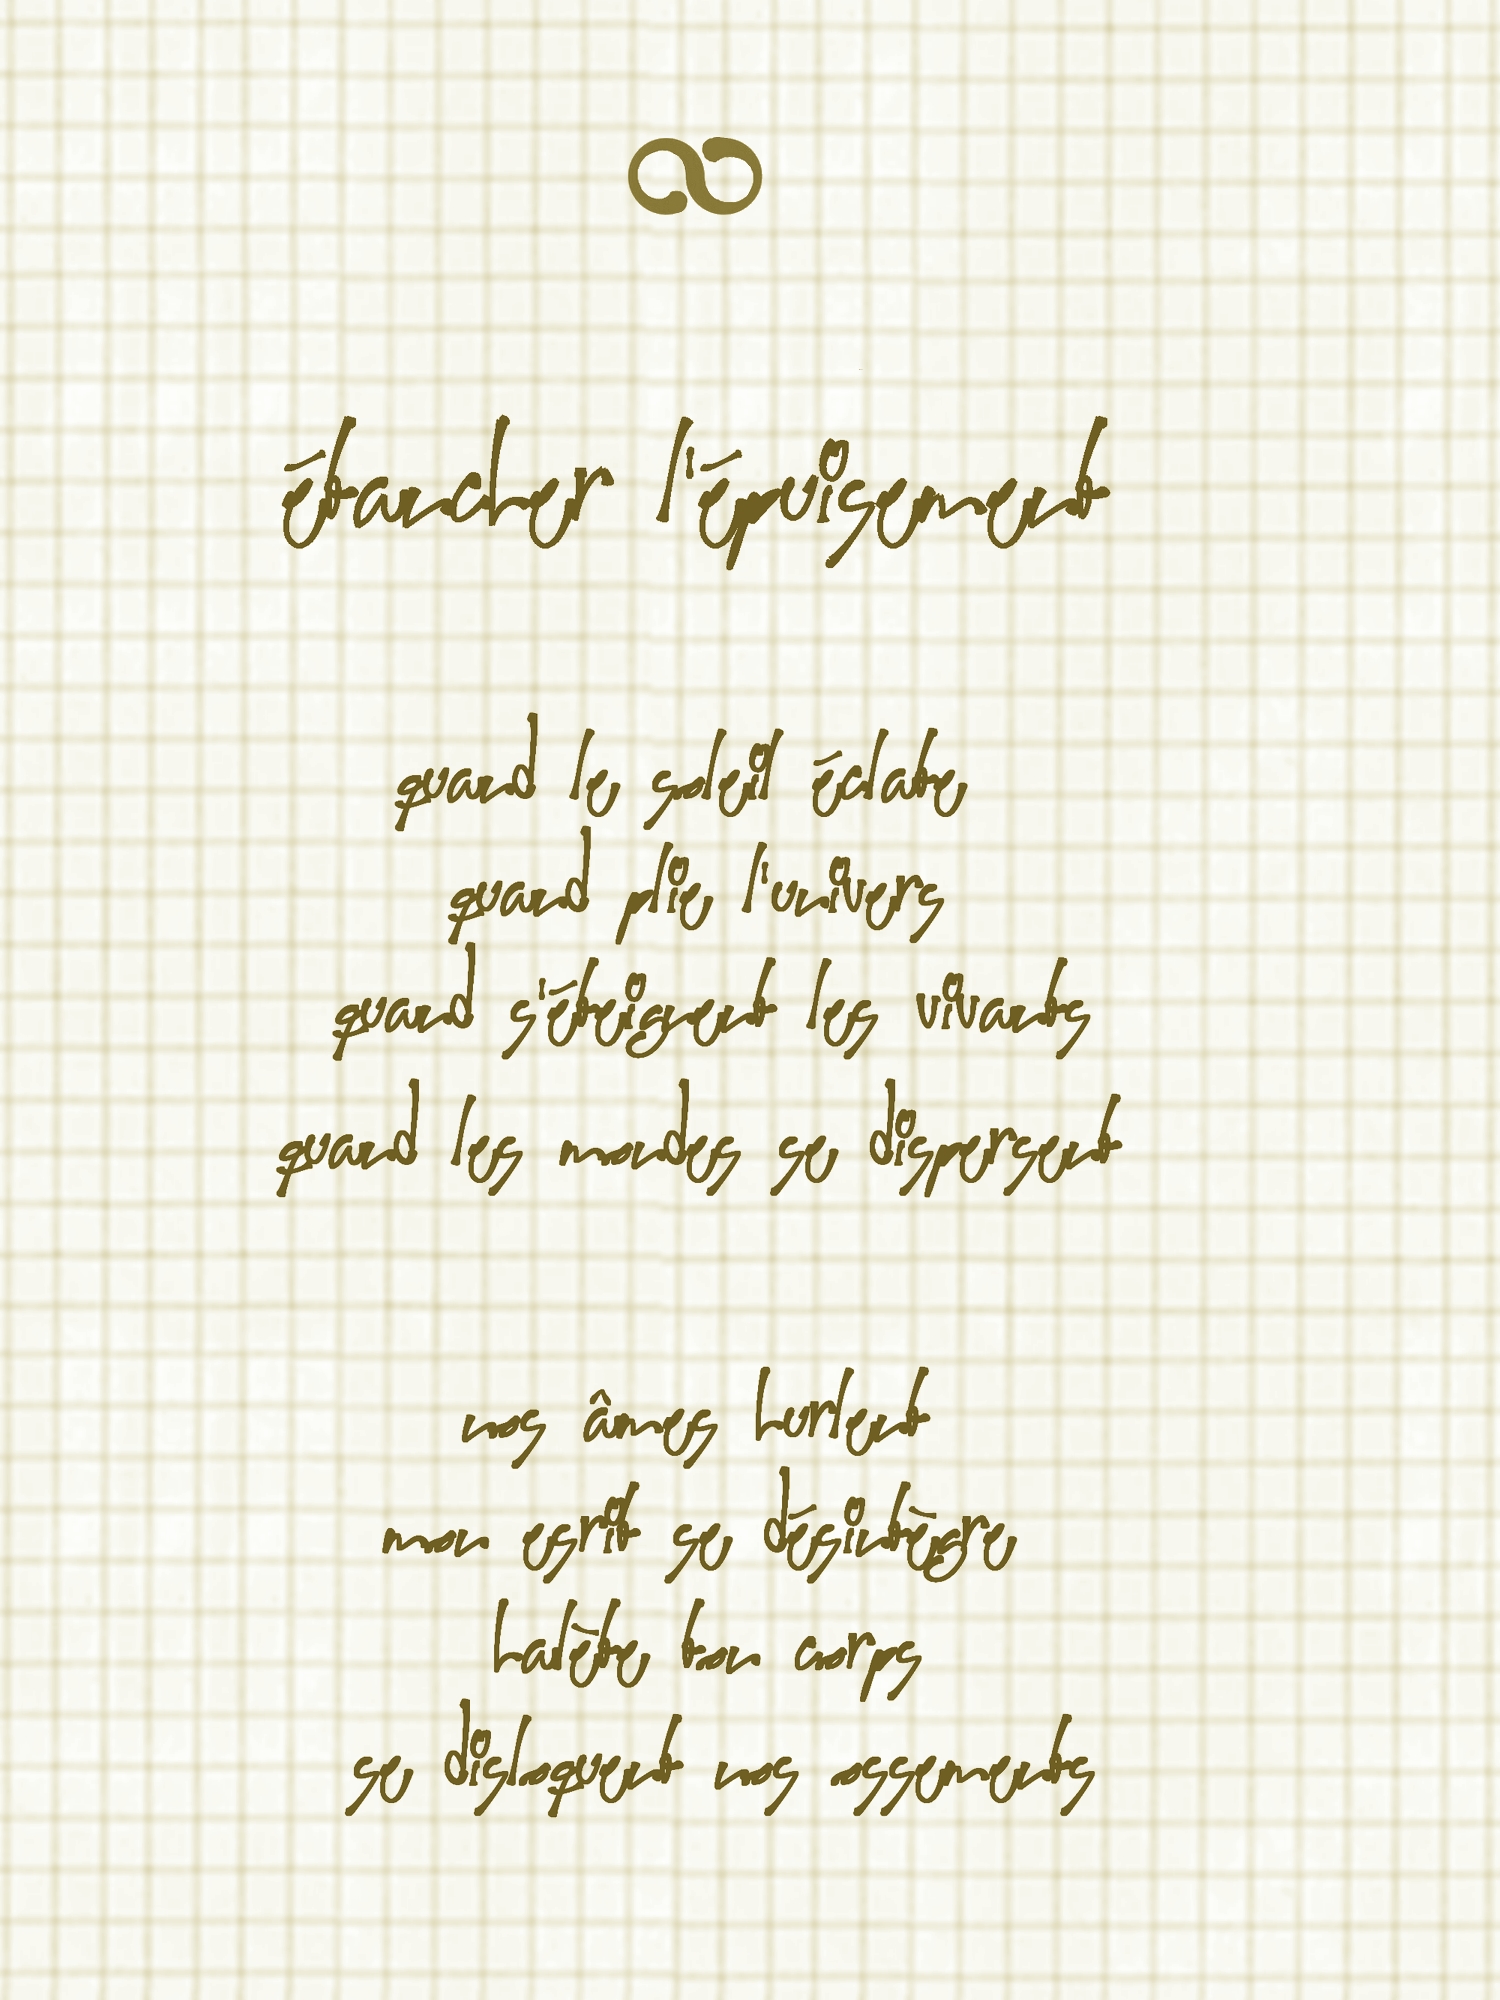 étancher l'épuisement
quand le soleil éclate
quand plie l'univers
quand s'éteignent les vivants
quand les mondes se dispersent
nos âmes hurlent
mon esrit se désintègre
halète ton corps
se disloquent nos ossements